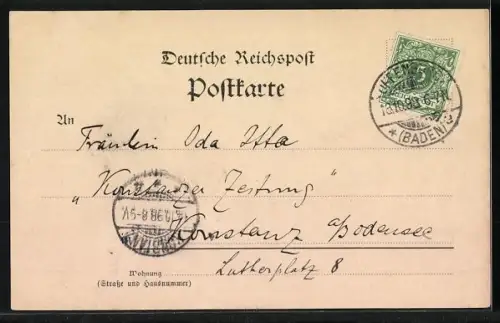 Deutsche Reichspost
Postkarte
An
Fräulein Oda Itta
"Konstanzer Zeitung"
Konstanz a/Bodensee
Lutherplatz 8
Wohnung
(Straße und Hausnummer)
5
*(BADEN)
98 8-9V.